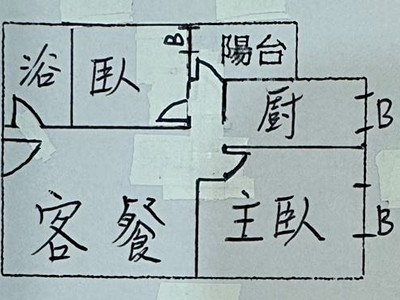 浴 臥 B 陽台
廚 B
客餐 主臥 B